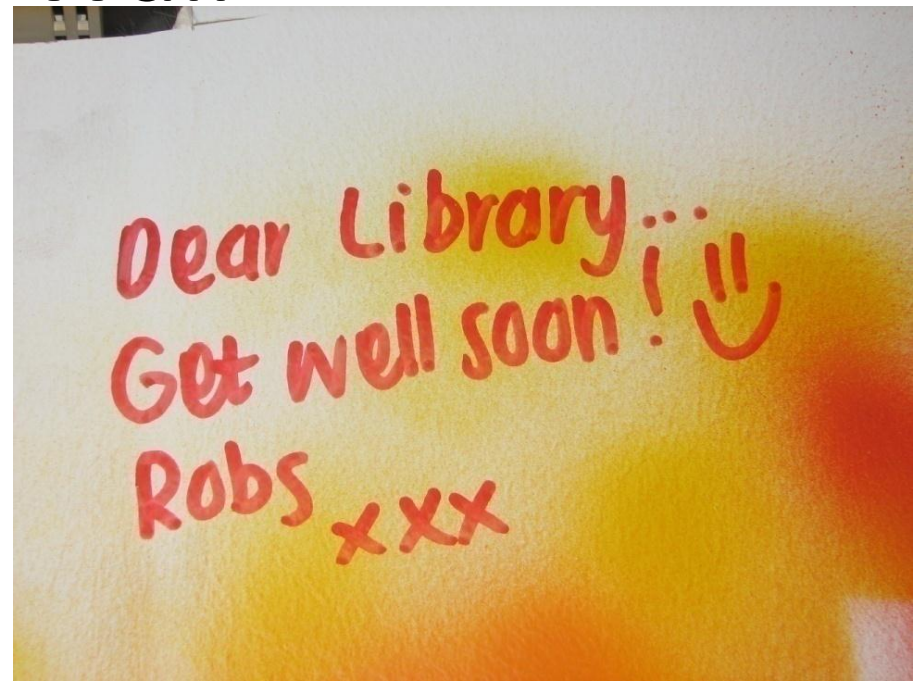 Dear Library...
Get well soon!
Robs xxx